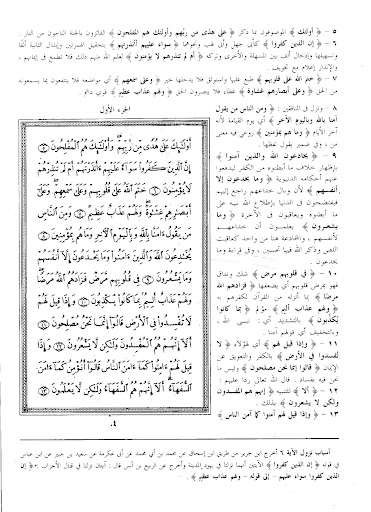 ٥ – ﴿ أولئك ﴾ الموصوفون بما ذكر ﴿ على هدى من ربهم وأولئك هم المفلحون ﴾ الفائزون بالجنة الناجون من النار .
٦ – ﴿ إن الذين كفروا ﴾ كأبي جهل وأبي لهب ونحوهما ﴿ سواء عليهم أأنذرتهم ﴾ بتحقيق الهمزتين وإبدال الثانية ألفًا
وتسهيلها وإدخال ألف بين المسهلة والأخرى وتركه ﴿ أم لم تنذرهم لا يؤمنون ﴾ لعلم الله منهم ذلك فلا تطمع في إيمانهم ،
والإنذار إعلام مع تخويف .
٧ – ﴿ ختم الله على قلوبهم ﴾ طبع عليها واستوثق فلا يدخلها خير ﴿ وعلى سمعهم ﴾ أي مواضعه فلا ينتفعون بما يسمعونه
من الحق ﴿ وعلى أبصارهم غشاوة ﴾ غطاء فلا يبصرون الحق ﴿ ولهم عذاب عظيم ﴾ قوي دائم .
٨ – ونزل في المنافقين : ﴿ ومن الناس من يقول
آمنا بالله وباليوم الآخر ﴾ أي يوم القيامة لأنه
آخر الأيام ﴿ وما هم بمؤمنين ﴾ روعي فيه معنى
من ، وفي ضمير يقول لفظها .
٩ – ﴿ يخادعون الله والذين آمنوا ﴾
بإظهار خلاف ما أبطنوه من الكفر ليدفعوا
عنهم أحكامه الدنيوية ﴿ وما يخدعون إلا
أنفسهم ﴾ لأن وبال خداعهم راجع إليهم
فيفتضحون في الدنيا بإطلاع الله نبيه على
ما أبطنوه ويعاقبون في الآخرة ﴿ وما
يشعرون ﴾ يعلمون أن خداعهم
لأنفسهم ، والمخادعة هنا من واحد كعاقبت
اللص وذكر الله فيها تحسين ، وفي قراءة وما
يخدعون .
١٠ – ﴿ في قلوبهم مرض ﴾ شك ونفاق
فهو يمرض قلوبهم أي يضعفها ﴿ فزادهم الله
مرضًا ﴾ بما أنزله من القرآن لكفرهم به
﴿ ولهم عذاب أليم ﴾ مؤلم ﴿ بما كانوا
يكذبون ﴾ بالتشديد أي : نبي الله ،
وبالتخفيف أي قولهم آمنا .
١١ – ﴿ وإذا قيل لهم ﴾ أي لهؤلاء ﴿ لا
تفسدوا في الأرض ﴾ بالكفر والتعويق عن
الإيمان ﴿ قالوا إنما نحن مصلحون ﴾ وليس ما
نحن فيه بفساد . قال الله تعالى ردا عليهم :
١٢ – ﴿ ألا ﴾ للتنبيه ﴿ إنهم هم المفسدون
ولكن لا يشعرون ﴾ بذلك .
١٣ – ﴿ وإذا قيل لهم آمنوا كما آمن الناس ﴾
الجزء الأول
أُولَٰئِكَ عَلَىٰ هُدًى مِّن رَّبِّهِمْ وَأُولَٰئِكَ هُمُ الْمُفْلِحُونَ ٥
إِنَّ الَّذِينَ كَفَرُوا سَوَاءٌ عَلَيْهِمْ ءَأَنذَرْتَهُمْ أَمْ لَمْ تُنذِرْهُمْ
لَا يُؤْمِنُونَ ٦ خَتَمَ اللَّهُ عَلَىٰ قُلُوبِهِمْ وَعَلَىٰ سَمْعِهِمْ وَعَلَىٰ
أَبْصَارِهِمْ غِشَاوَةٌ وَلَهُمْ عَذَابٌ عَظِيمٌ ٧ وَمِنَ النَّاسِ
مَن يَقُولُ ءَامَنَّا بِاللَّهِ وَبِالْيَوْمِ الْآخِرِ وَمَا هُم بِمُؤْمِنِينَ ٨
يُخَادِعُونَ اللَّهَ وَالَّذِينَ ءَامَنُوا وَمَا يَخْدَعُونَ إِلَّا أَنفُسَهُمْ
وَمَا يَشْعُرُونَ ٩ فِي قُلُوبِهِم مَّرَضٌ فَزَادَهُمُ اللَّهُ مَرَضًا
وَلَهُمْ عَذَابٌ أَلِيمٌ بِمَا كَانُوا يَكْذِبُونَ ١٠ وَإِذَا قِيلَ لَهُمْ
لَا تُفْسِدُوا فِي الْأَرْضِ قَالُوا إِنَّمَا نَحْنُ مُصْلِحُونَ ١١
أَلَا إِنَّهُمْ هُمُ الْمُفْسِدُونَ وَلَٰكِن لَّا يَشْعُرُونَ ١٢ وَإِذَا
قِيلَ لَهُمْ ءَامِنُوا كَمَا ءَامَنَ النَّاسُ قَالُوا أَنُؤْمِنُ كَمَا ءَامَنَ
السُّفَهَاءُ أَلَا إِنَّهُمْ هُمُ السُّفَهَاءُ وَلَٰكِن لَّا يَعْلَمُونَ ١٣
٤
أسباب نزول الآية ٦ أخرج ابن جرير من طريق ابن إسحاق عن محمد بن أبي محمد عن أبي عكرمة عن سعيد بن جبير عن ابن عباس
في قوله ﴿ إن الذين كفروا ﴾ الآيتين أنهما نزلتا في يهود المدينة وأخرج عن الربيع بن أنس قال : آيتان نزلتا في قتال الأحزاب ﴿ إن
الذين كفروا سواء عليهم – إلى قوله – ولهم عذاب عظيم ﴾ .